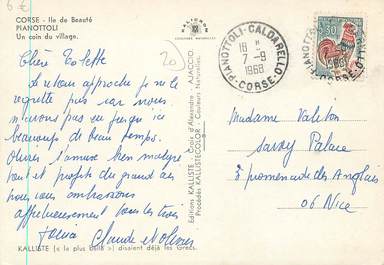 6 €
CORSE - Ile de Beauté
PIANOTTOLI
Un coin du village.
20
Chère Colette
Le retour approche je ne le
regrette pas car nous
n'avons pas eu jusqu'ici
beaucoup de beau temps.
Olivier s'amuse bien malgré
tout et profite du grand air
nous vous embrassons
affectueusement tous les trois
Claude et Olivier
KALLISTE (« la plus belle ») disaient déjà les Grecs.
Editions KALLISTE - Croix d'Alexandre - AJACCIO.
Procédés KALLISTECOLOR - Couleurs Naturelles.
PIANOTTOLI-CALDARELLO
18 H
7-9
1968
CORSE
0,30
Madame Valiton
Savoy Palace
3 promenade des Anglais
06 Nice